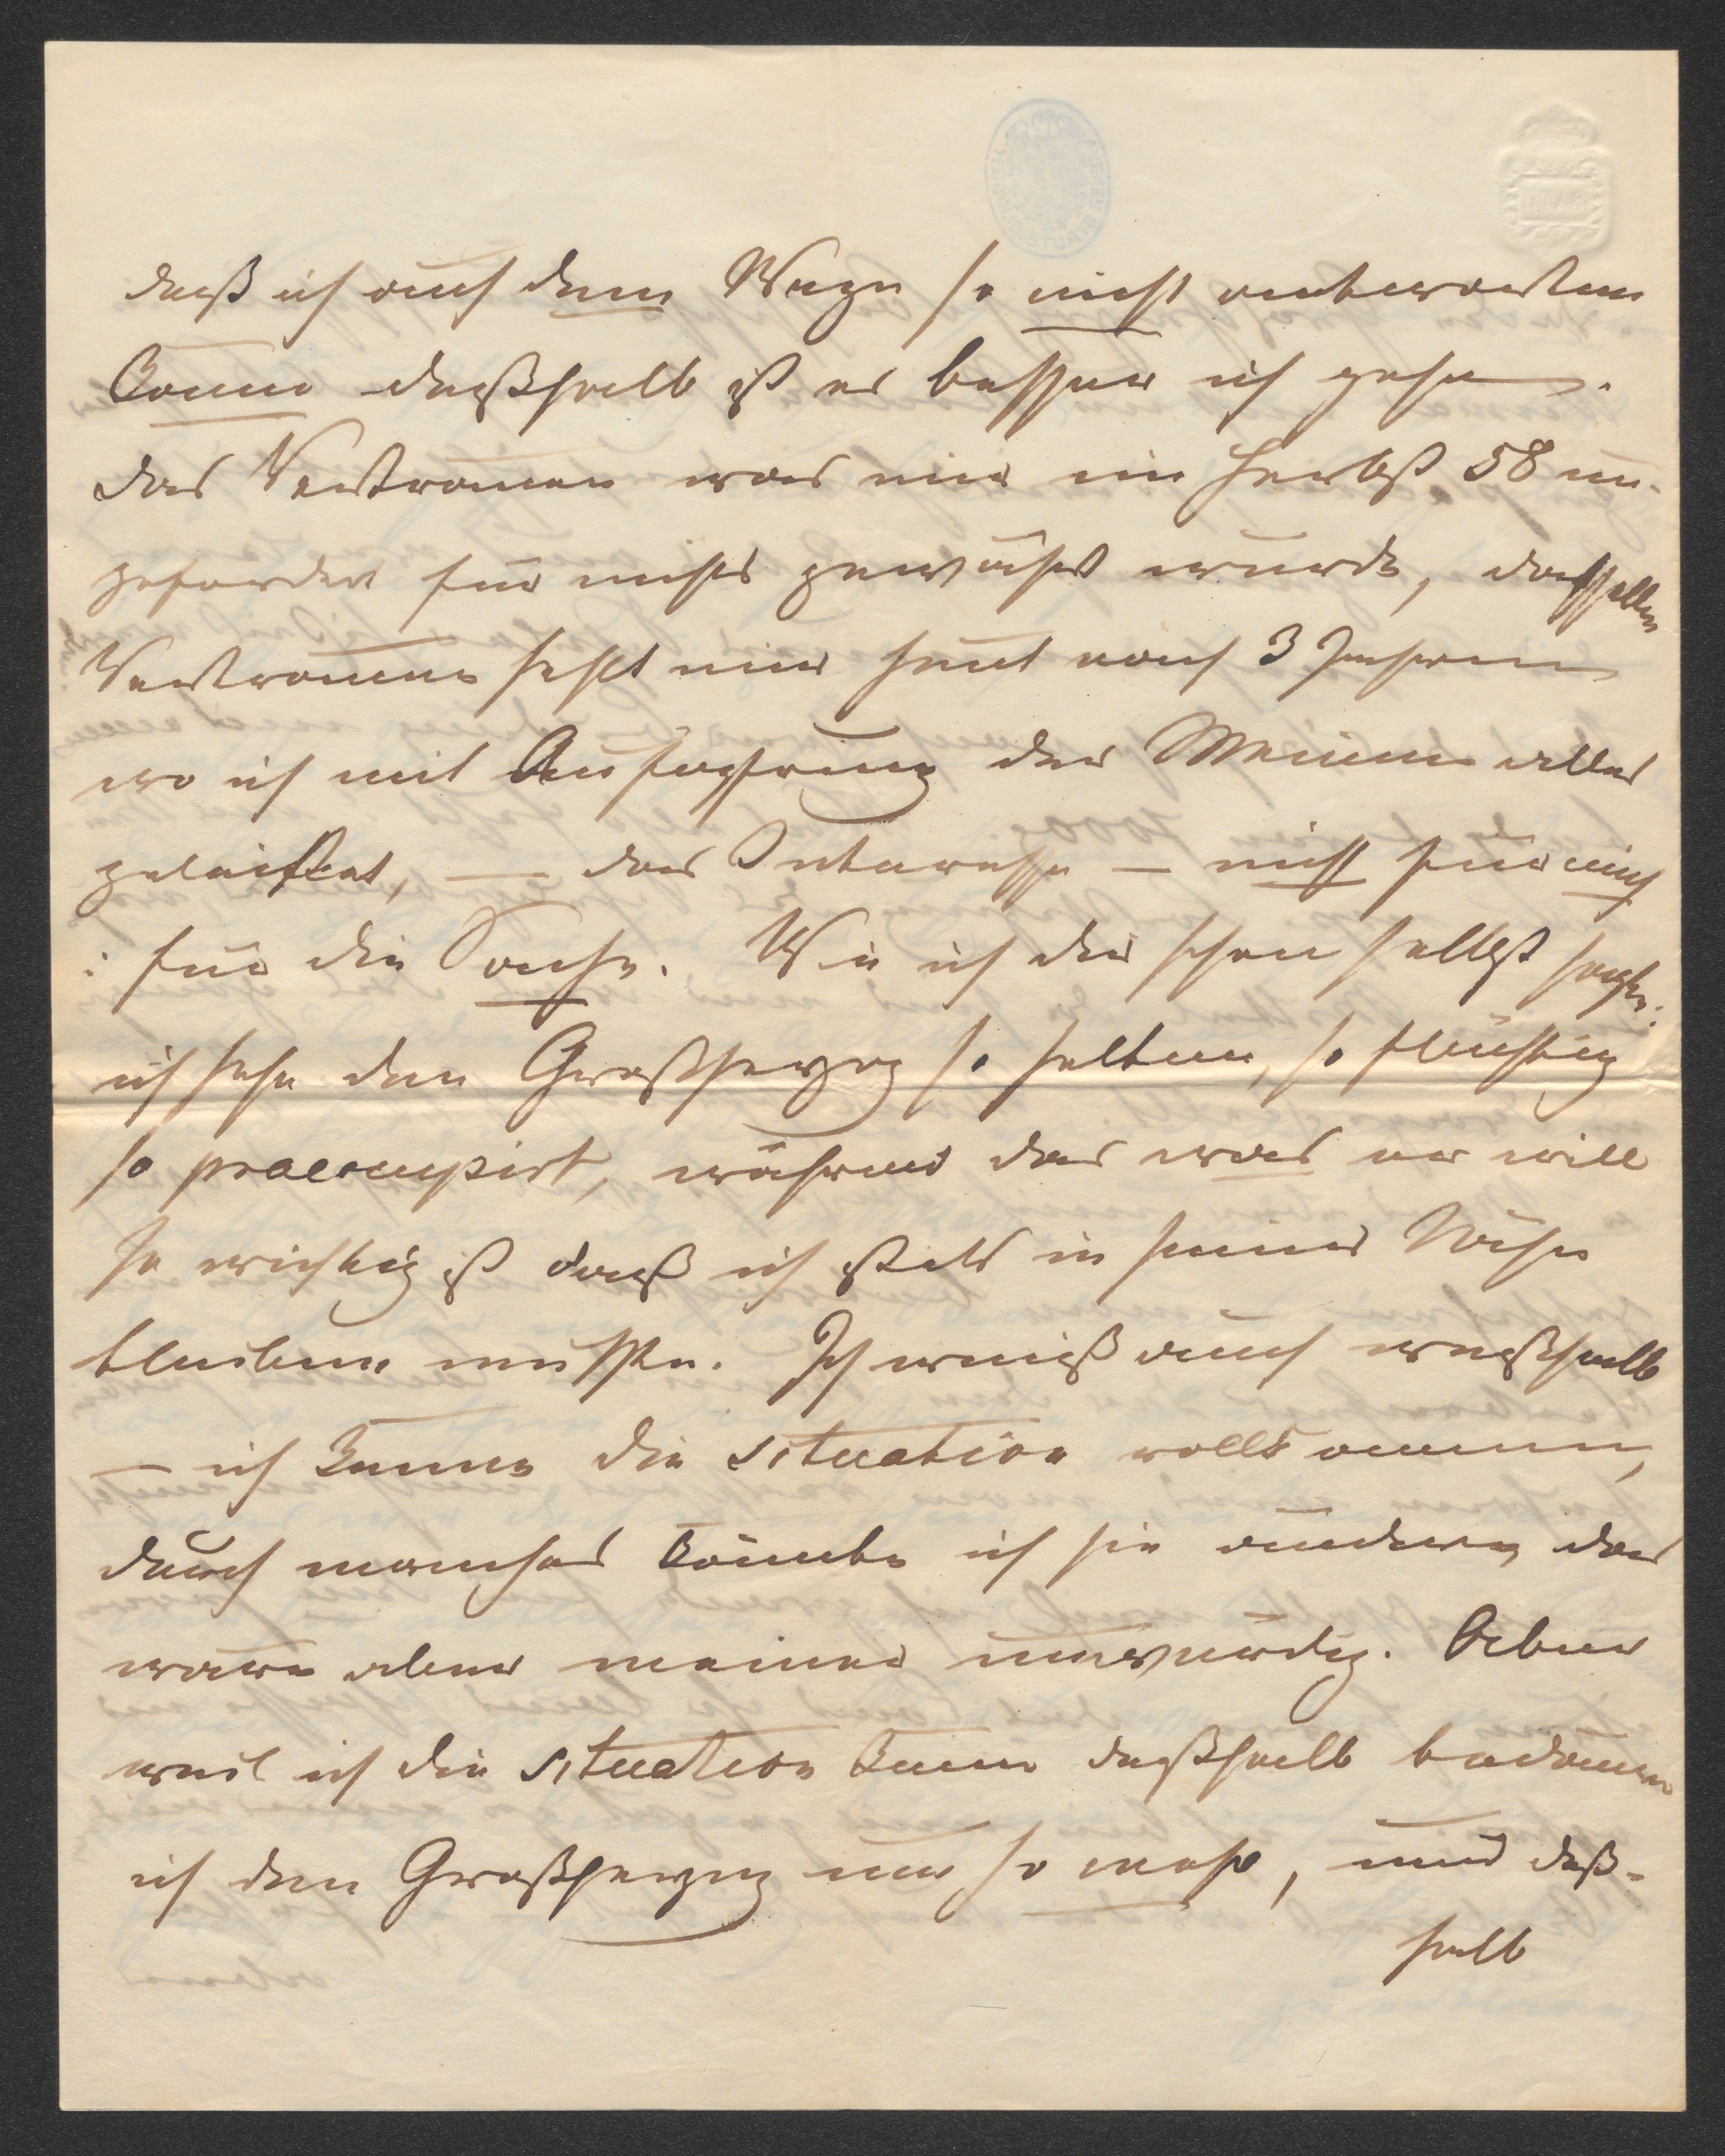 daß ich auf dem Wege so nicht antworten
kann deßhalb ist es besser ich gehe.
Das Vertrauen was mir im Herbst 58 un-
gefordert für nichts gewährt wurde, dasselbe
Vertrauen fehlt mir heut nach 3 Jahren
wo ich mit Aufopfrung der Meinen alles
geleistet, — das Interesse — nicht für mich
: für die Sache. Wie ich dir schon selbst sagte:
ich sehe den Großherzog so selten, so flüchtig
so praeocupirt, während das was er will
so wichtig ist daß ich stets in seiner Nähe
bleiben müßte. Ich weiß auch weßhalb
— ich kenne die Situation vollkommen,
durch manches könnte ich sie ändern das
wäre aber meiner unwürdig. Aber
weil ich die Situation kenne deßhalb bedaure
ich den Großherzog nur so mehr, und deß-
halb